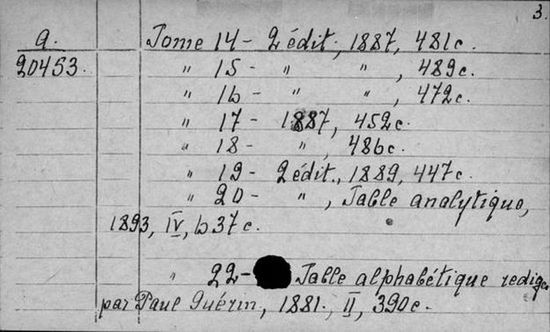 3.
a. Tome 14 - 2 édit, 1887, 481 c.
20453. " 15 - " ", 489 c.
" 16 - " ", 472 c.
" 17 - 1887, 452 c.
" 18 - ", 486 c.
" 19 - 2 édit., 1889, 447 c.
" 20 - ", Table analytique,
1893, IV, 637 c.
" 22 - Table alphabétique
par Paul Guérin, 1881. II, 390 c.